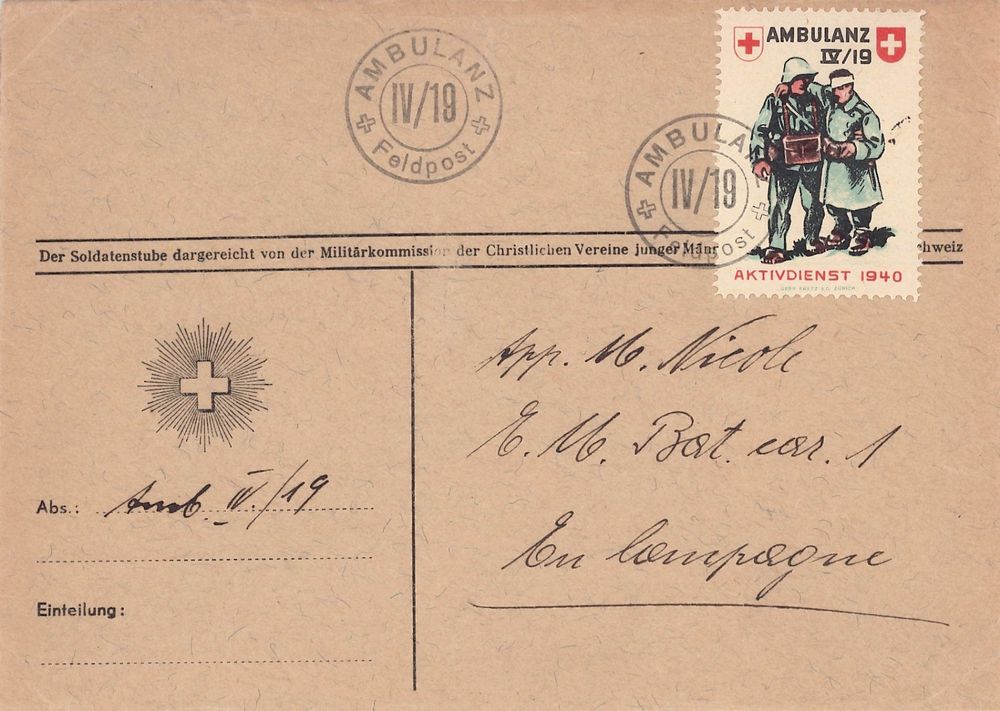 AMBULANZ
IV/19
Feldpost
AMBULANZ
IV/19
Feldpost
AMBULANZ
IV/19
AKTIVDIENST 1940
Der Soldatenstube dargereicht von der Militärkommission der Christlichen Vereine junger Männ
chweiz
App. M. Nicole
E. M. Bat. car. 1
En Campagne
Abs.: Amb. IV./19
Einteilung: